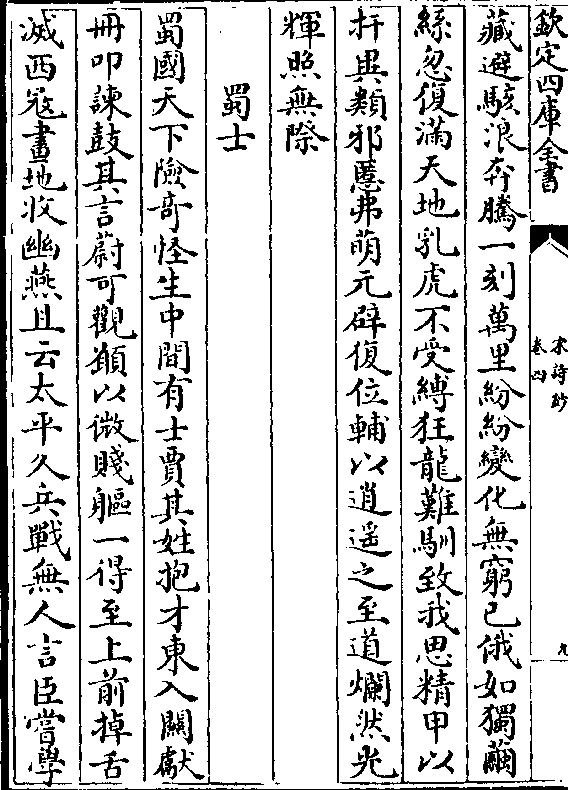 欽定四庫全書
宋詩鈔
卷四
九
藏避駭浪奔騰一刻萬里紛紛變化無窮已俄如獨繭
絲忽復滿天地乳虎不受縛狂龍難馴致我思精甲以
扞異類邪慝弗萌元辟復位輔以逍遥之至道爛然光
輝照無際
蜀士
蜀國天下險奇怪生中間有士賈其姓抱才東入關獻
冊叩諫鼓其言蔚可觀願以微賤軀一得至上前掉舌
滅西寇畫地收幽燕且云太平久兵戰無人言臣嘗學